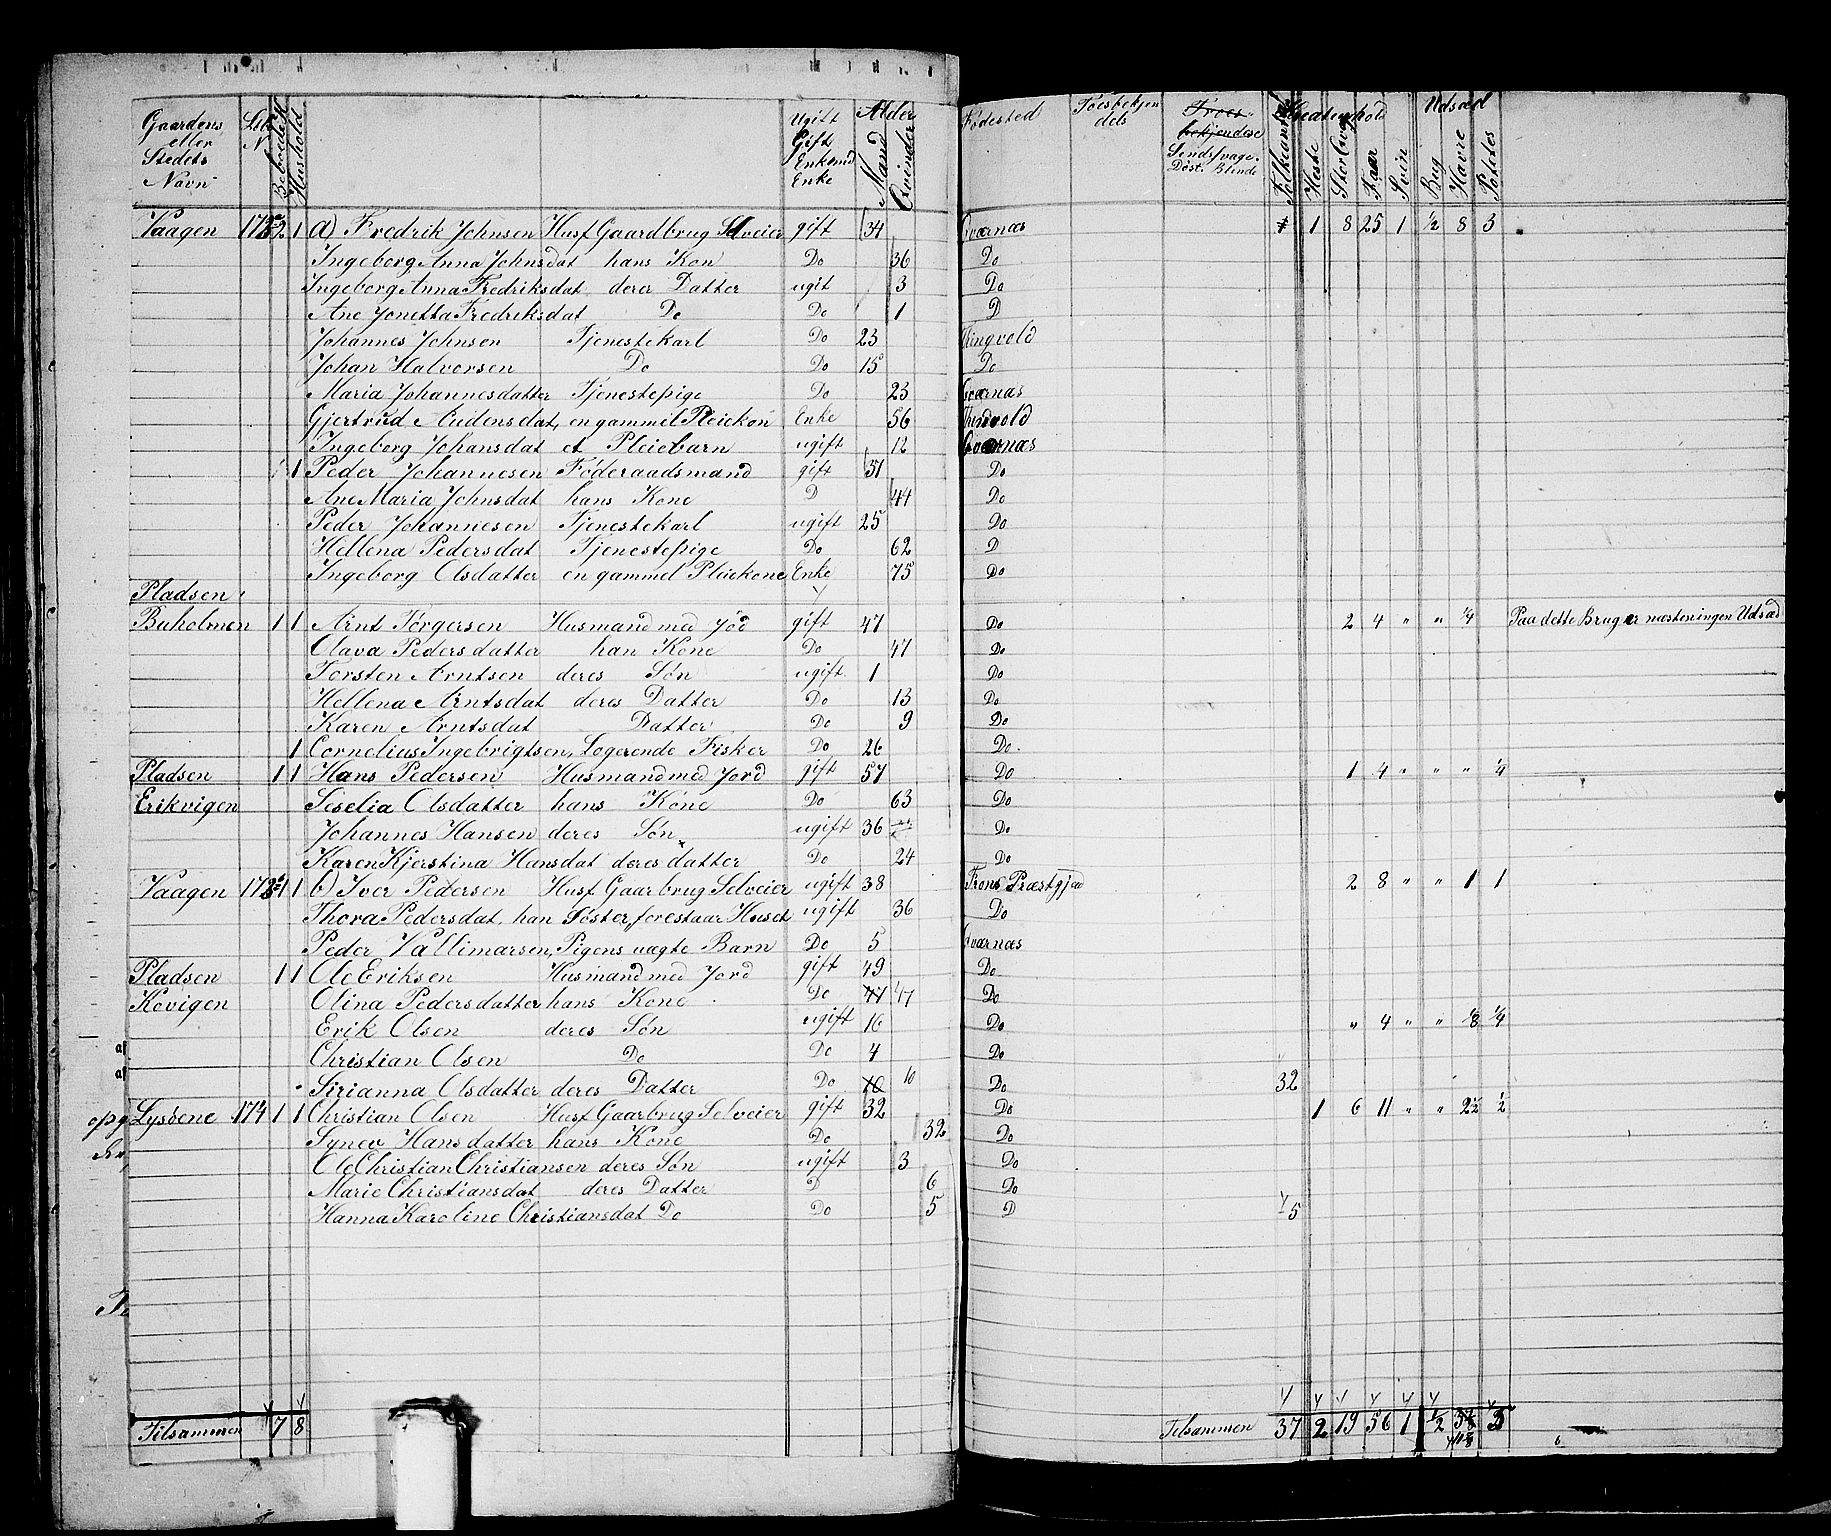 Gaardens eller Stedets Navn | Beboede H | Hushold | Ugift Gift Enkemd Enke | Alder Mand Qvinder | Fødested | Troesbekjendels | Sindsvage. Døst. Blinde | Folkeantal | Kreaturhold Heste Storkvæg Faar Svin | Udsæd Byg Havre Potetes
Vaagen 2 1 a) Fredrik Johnsen Husf Gaardbrug Selveier gift 34 Qværnæs 1 8 25 1 ½ 8 3
Ingeborg Anna Johnsdat hans Kon Do 36 Do
Ingeborg Anna Fredriksdat deres Datter ugit 3 Do
Ane Jonetta Fredriksdat Do Do 1 D
Johannes Johnsen Tjenestekarl Do 23 Thingvold
Johan Halvorsen Do Do 15 Do
Maria Johannesdatter Tjenestepige Do 23 Qværnæs
Gjertrud Audensdat, en gammel Pleiekon Enke 56 Thindvold
Ingeborg Johansdat et Pleiebarn ugift 12 Qværnæs
1 Peder Johannesen Føderaadsmand gift 51 Do
Ane Maria Johnsdat hans Kone D 44 Do
Peder Johannesen Tjenestekarl ugift 25 Do
Hellena Pedersdat Tjenestepige Do 62 D
Ingeborg Olsdatter en gammel Pleiekone Enke 75 Do
Pladsen
Buholmen 1 1 Arnt Tørgersen Husmand med Jød gift 47 Do 2 4 " " ¼ Paa dette Brug er næsten ingen Udsæd
Olava Pedersdatter han Kone Do 47 Do
Torsten Arntsen deres Søn ugift 1 Do
Hellena Arntsdat deres Datter Do 13 Do
Karen Arntsdat Datter Do 9 Do
1 Cornelius Ingebrigtsen, Logerende Fisker Do 26 Do
Pladsen 1 1 Hans Pedersen Husmand med Jord gift 57 Do 1 4 " " " ¼
Erikvigen Seselia Olsdatter hans Kone Do 63 Do
Johannes Hansen deres Søn ugift 36 Do
Karen Kjerstina Hansdat deres datter Do 24 Do
Vaagen 1 1 b) Iver Pedersen Husf Gaarbrug Selveier ugift 38 Frons Præstgjæd 2 8 " " 1 1
Thora Pedersdat, han Søster, forestaar Huset ugift 36 Do
Peder Vallimarsen, Pigens uægte Barn Do 5 Qværnæs
Pladsen 1 1 Ole Eriksen Husmand med Jord gift 49 Do
Kovigen Olina Pedersdatter hans Kone Do 47 47 Do
Erik Olsen deres Søn ugift 16 Do " 4 " " ⅛ ¼
Christian Olsen Do Do 4 Do
Sirianna Olsdatter deres Datter Do 10 10 Do 32
opg Lyssene 174 1 1 Christian Olsen Husf Gaarbrug Selveier gift 32 Do 1 6 11 " " 2½ ½
Synev Hansdatter hans Kone Do 32 Do
Ole Christian Christiansen deres Søn ugift 3 Do
Marie Christiansdat deres Datter D 6 Do
Hanna Karoline Christiansdat Do Do 5 D 5
Tilsammen 7 8 Tilsammen 37 2 19 56 1 ½ 5